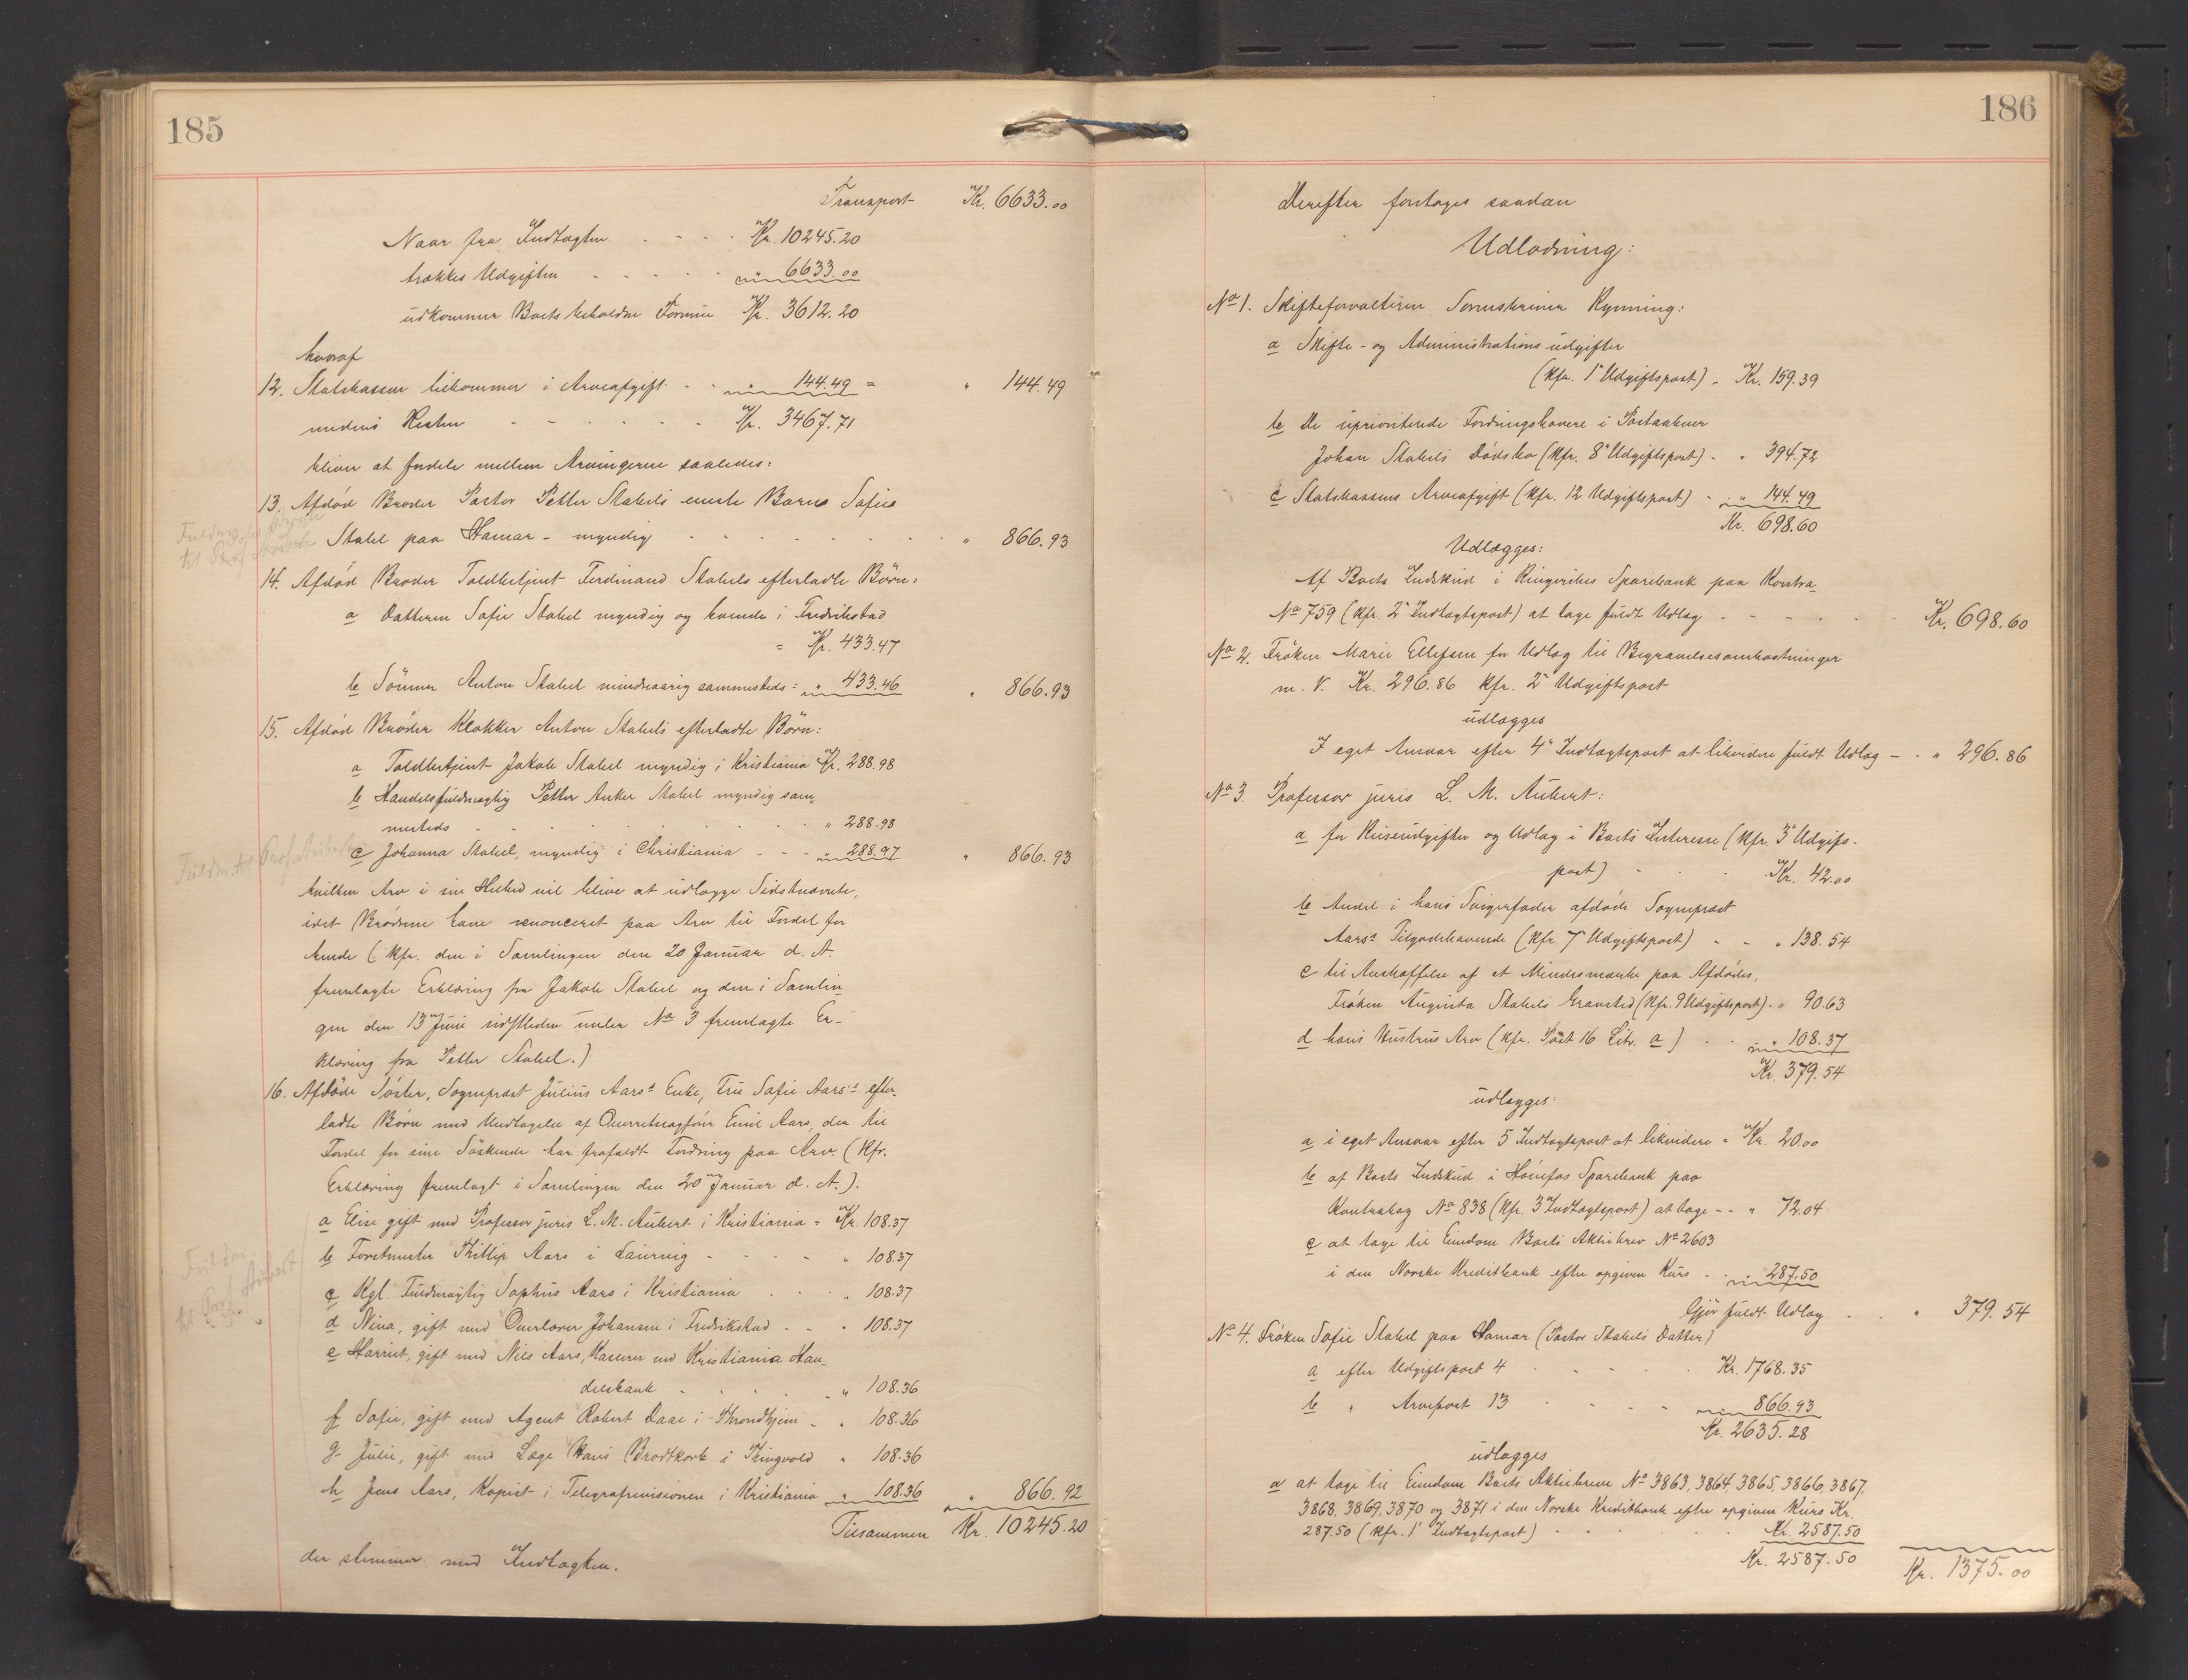 185
Transport Kr. 6633.00
Naar fra Indtægten - - - Kr. 10245.20
trækkes Udgiften - - - - - " 6633.00
udkommer Boets beholdne Formue Kr. 3612.20
hvoraf
12. Statskassen tilkommer i Arveafgift - - " 144.49 = " 144.49
medens Resten - - - - - - Kr. 3467.71
bliver at fordele mellem Arvingerne saaledes:
13. Afdød Broder Pastor Petter Stabels eneste Barn Sofie
Stabel paa Hamar - myndig - - - - - - - " 866.93
14. Afdød Broder Toldbetjent Ferdinand Stabels efterladte Börn:
a Datteren Sofie Stabel myndig og boende i Fredrikstad
= Kr. 433.47
b Sönnen Anton Stabel mindreaarig sammesteds = " 433.46 " 866.93
15. Afdød Broder Klokker Anton Stabels efterladte Börn:
a Toldbetjent Jakob Stabel myndig i Kristiania Kr. 288.98
b Handelsfuldmægtig Petter Anker Stabel myndig sam-
mesteds - - - - - - - - - " 288.98
c Johanna Stabel, myndig i Christiania - - - " 288.97 " 866.93
hvilken Arv i sin Helhed vil blive at udlægge Sidstnævnte,
idet Brødrene have renonceret paa Arv til Fordel for
hende (Kfr. den i Samlingen den 20 Januar d. A.
fremlagte Erklæring fra Jakob Stabel og den i Samlin
gen den 13 Juni sidstleden under No 3 fremlagte Er-
klæring fra Petter Stabel.)
16. Afdöde Söster, Sogneprest Julius Aars's Enke, Fru Sofie Aars's efter-
ladte Börn med Undtagelse af Overretssagförer Emil Aars, der til
Fordel for sine Söskende har frafaldt Fordring paa Arv. (Kfr.
Erklæring fremlagt i Samlingen den 20 Januar d. A.).
a Elise gift med Professor juris L. M. Aubert i Kristiania = Kr. 108.37
b Forstmester Phillip Aars i Laurvig - - - - " 108.37
c Kgl. Fuldmægtig Sophus Aars i Kristiania - - - " 108.37
d Nina, gift med Overlærer Johansen i Fredrikstad - - " 108.37
e Harriet, gift med Nils Aars, Kasserer ved Kristiania Han-
delsbank - - - - " 108.36
f Sofie, gift med Agent Robert Daae i Throndhjem - " 108.36
g Julie, gift med Læge Hans Brodtkorb i Thingvold " 108.36
h Jens Aars, Kopist i Telegrafrevisionen i Kristiania " 108.36 " 866.92
Tilsammen Kr. 10245.20
der stemmer med Indtægten.
186
Derefter foretages saadan
Udlodning:
No 1. Skifteforvalteren Sorenskriver Rynning:
a Skifte- og Administrationsudgifter
(Kfr. 1' Udgiftspost) - Kr. 159.39
b De uprioriterede Fordringshavere i Postaabner
Johan Stabels Dødsbo (Kfr. 8' Udgiftspost) - " 394.72
c Statskassens Arveafgift (Kfr. 12 Udgiftspost) - " 144.49
Kr. 698.60
Udlægges:
Af Boets Indskud i Ringerikes Sparebank paa Kontra
No 759 (Kfr. 2' Indtægtspost) at tage fuldt Udlæg - - - - - Kr. 698.60
No 2. Fröken Marie Ellefsen for Udlæg til Begravelsesomkostninger
m. V. Kr. 296.86 Kfr. 2' Udgiftspost
udlægges
I eget Ansvar efter 4' Indtægtspost at likvidere fuldt Udlæg - - " 296.86
No 3 Professor juris L. M. Aubert:
a for Reiseudgifter og Udlæg i Boets Interesse (Kfr. 3' Udgifs-
post) - - Kr. 42.00
b Andel i hans Svigerfader afdöde Sogneprest
Aars's Tilgodehavende (Kfr. 7' Udgiftspost) - - " 138.54
c til Anskaffelse af et Mindesmærke paa Afdödes,
Fröken Augusta Stabels Gravsted (Kfr. 9 Udgiftspost) - " 90.63
d hans Hustrus Arv (Kfr. Post 16 Litr. a) - - " 108.37
Kr. 379.54
udlægges:
a i eget Ansvar efter 5 Indtægtspost at likvidere = Kr. 20.00
b af Boets Indskud i Hönefos Sparebank paa
Kontrabog No 838 (Kfr. 3' Indtægtspost) at tage - - " 72.04
c at tage til Eiendom Boets Aktiebrev No 2603
i den Norske Kreditbank efter opgiven Kurs - - " 287.50
Gjör fuldt Udlæg - - " 379.54
No 4. Fröken Sofie Stabel paa Hamar (Pastor Stabels Datter)
a efter Udgiftspost 4 - - - - Kr. 1768.35
b " Arvepost 13 - - - - " 866.93
Kr. 2635.28
udlægges
a at tage til Eiendom Boets Aktiebreve No 3863, 3864, 3865, 3866, 3867,
3868, 3869, 3870 og 3871 i den Norske Kreditbank efter opgiven Kurs Kr.
287.50 (Kfr. 1' Indtægtspost) - - - - Kr. 2587.50
Kr. 2587.50 Kr. 1375.00